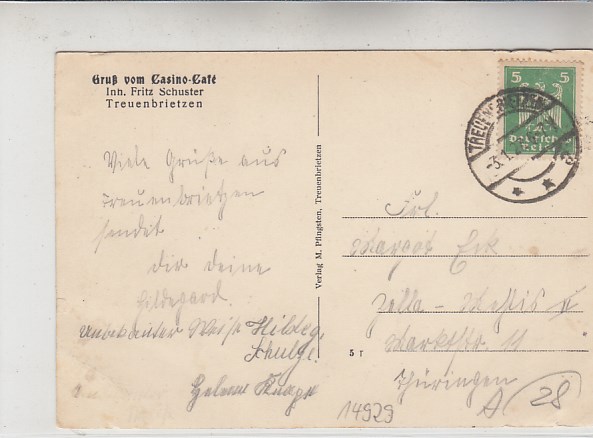 Gruß vom Casino-Café
Inh. Fritz Schuster
Treuenbrietzen
Viele Grüße aus
Treuenbrietzen
sendet
dir deine
Hildegard.
Unbekannter Weise Hildeg.
Schulze.
Helene
Verlag M. Pfingsten, Treuenbrietzen
5 5
Deutsches
Reich
TREUENBRIETZEN
Frl.
Margot Eck
Zella-Mehlis II
Marktstr. 11
Thüringen
5 r
14929
A 28